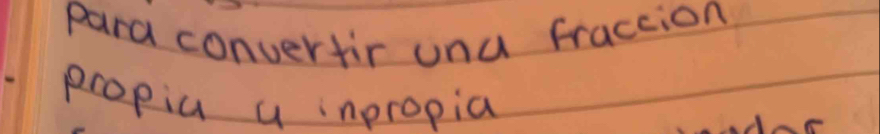 para convertir una fraccion
propia a inpropia